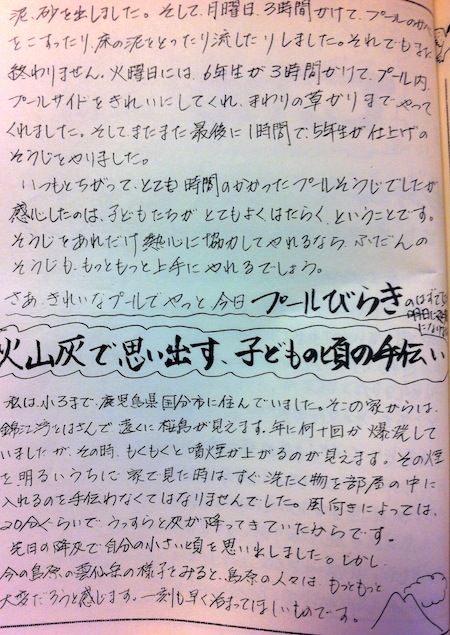 泥、砂を出しました。そして、月曜日、3時間かけて、プールのかべ
をこすったり、床の泥をとったり流したりしました。それでもまだ
終わりません。火曜日には、6年生が3時間かけて、プール内、
プールサイドをきれいにしてくれ、まわりの草かりまでやって
くれました。そしてまたまた最後に1時間で、5年生が仕上げの
そうじをやりました。
いつもとちがって、とても時間のかかったプールそうじでしたが
感心したのは、子どもたちがとてもよくはたらく、ということです。
そうじをあれだけ熱心に協力してやれるなら、ふだんの
そうじも、もっともっと上手にやれるでしょう。
さあ、きれいなプールでやっと、今日プールびらき
のはずでした
明日に延期
になりました
火山灰で思い出す、子どもの頃の手伝い
私は、小3まで、鹿児島県国分市に住んでいました。そこの家からは、
錦江湾をはさんで遠くに桜島が見えます。年に何十回か爆発して
いましたが、その時、もくもくと噴煙が上がるのが見えます。その煙
を明るいうちに家で見た時は、すぐ洗たく物を部屋の中に
入れるのを手伝わなくてはなりませんでした。風向きによっては、
20分ぐらいで、うっすらと灰が降ってきていたからです。
先日の降灰で自分の小さい頃を思い出しました。しかし、
今の島原の雲仙岳の様子をみると、島原の人々は、もっともっと
大変だろうと感じます。一刻も早く治まってほしいものです。